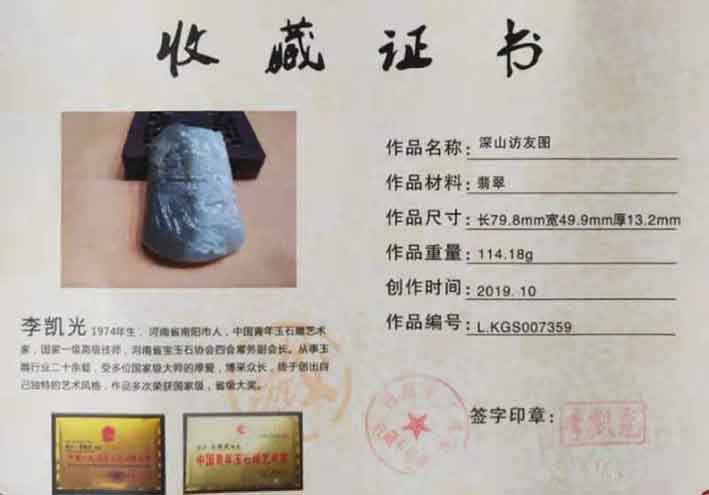 收藏证书
作品名称：深山访友图
作品材料：翡翠
作品尺寸：长79.8mm宽49.9mm厚13.2mm
作品重量：114.18g
创作时间：2019.10
作品编号：L.KGS007359
李凯光 1974年生．河南省南阳市人，中国青年玉石雕艺术
家，国家一级高级技师，河南省宝玉石协会四会常务副会长。从事玉
雕行业二十余载，受多位国家级大师的厚爱，博采众长，终于创出自
己独特的艺术风格，作品多次荣获国家级，省级大奖。
中国青年玉石雕艺术家
签字印章：
李凯光